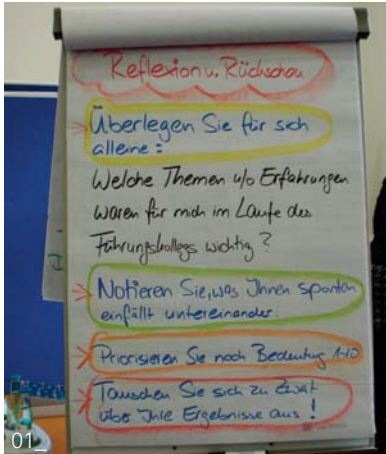 Reflexion u. Rückschau
Überlegen Sie für sich
alleine:
Welche Themen u/o Erfahrungen
waren für mich im Laufe des
Führungskollegs wichtig?
Notieren Sie, was Ihnen spontan
einfällt untereinander.
Priorisieren Sie nach Bedeutung 1-10
Tauschen Sie sich zu zweit
über Ihre Ergebnisse aus!
01_